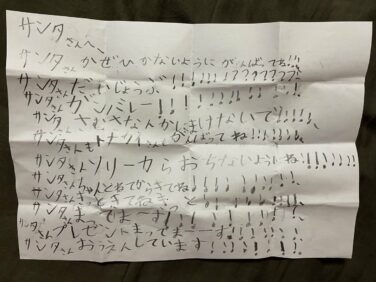 サンタさんへ、
サンタさんかぜひかないようにがんばってね!!
サンタさんだいじょうぶ!!!!!!????????
サンタさんガンバレー!!!!!!!!!!!
サンタさんさむさなんかにまけないで!!!!!
サンタさんもトナカイさんがんばってね!!!!!
サンタさんソリーからおちないようにね!!!!!!!!
サンタさんちゃんとねてからきてね!!!!!!!!
サンタさんきっときてね
サンタさんまってまーす!!!!!!!!
サンタさんプレゼントまってまーす!!!!!!!!
サンタさんおうえんしています!!!!!!!!